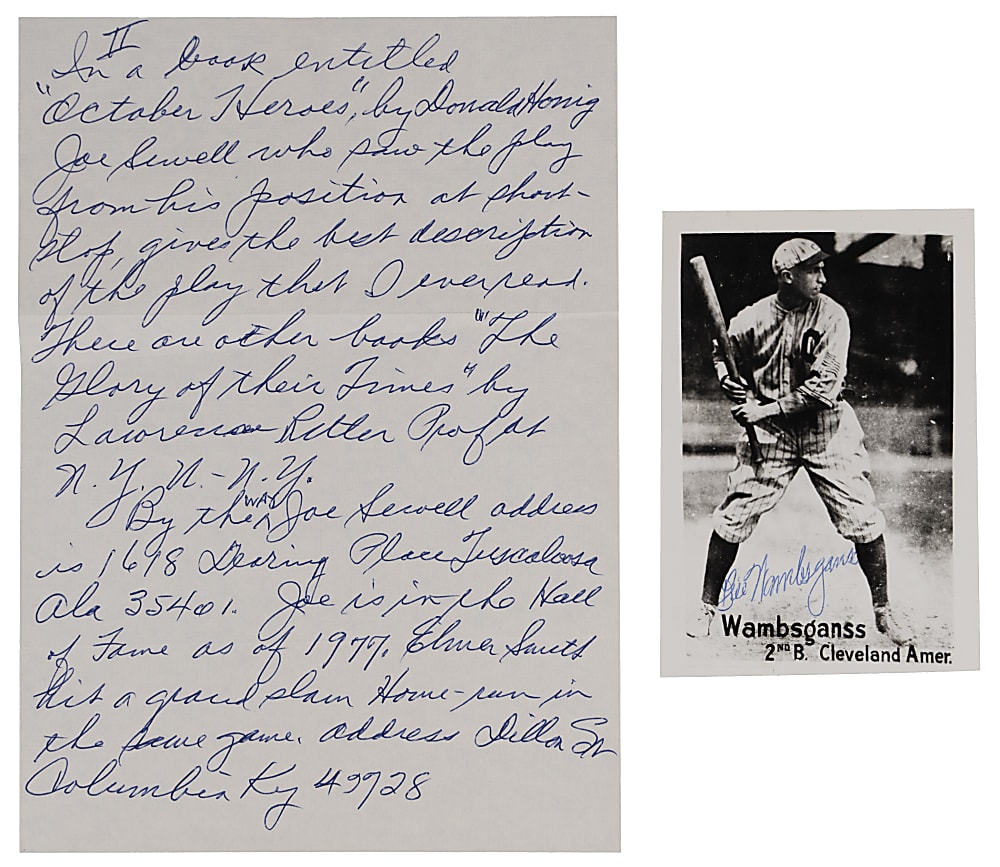 II
In a book entitled
"October Heroes", by Donald Honig
Joe Sewell who saw the play
from his position at short-
stop, gives the best description
of the play that I ever read.
There are other books "The
Glory of their Times" by
Lawrence Ritter Prof at
N.Y.U.-N.Y.
By the way Joe Sewell address
is 1618 Dearing Place Tuscaloosa
Ala 35401. Joe is in the Hall
of Fame as of 1977. Elmer Smith
hit a grand slam Home-run in
the same game. address Dillon St
Columbia Ky 42728
Bill Wambsganss
Wambsganss
2ND B. Cleveland Amer.
C